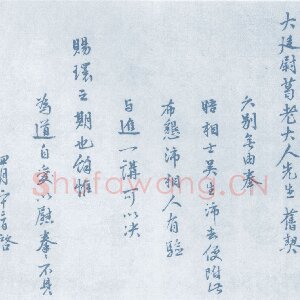 大廷尉葛老大人先生舊契
久別無由奉
晤相士吳玉沛去便附此
布懇沛相人有驗
与進一講可以決
賜環之期也餘惟
為道自愛以慰拳拳不具
四月二十
Shufawang.CN